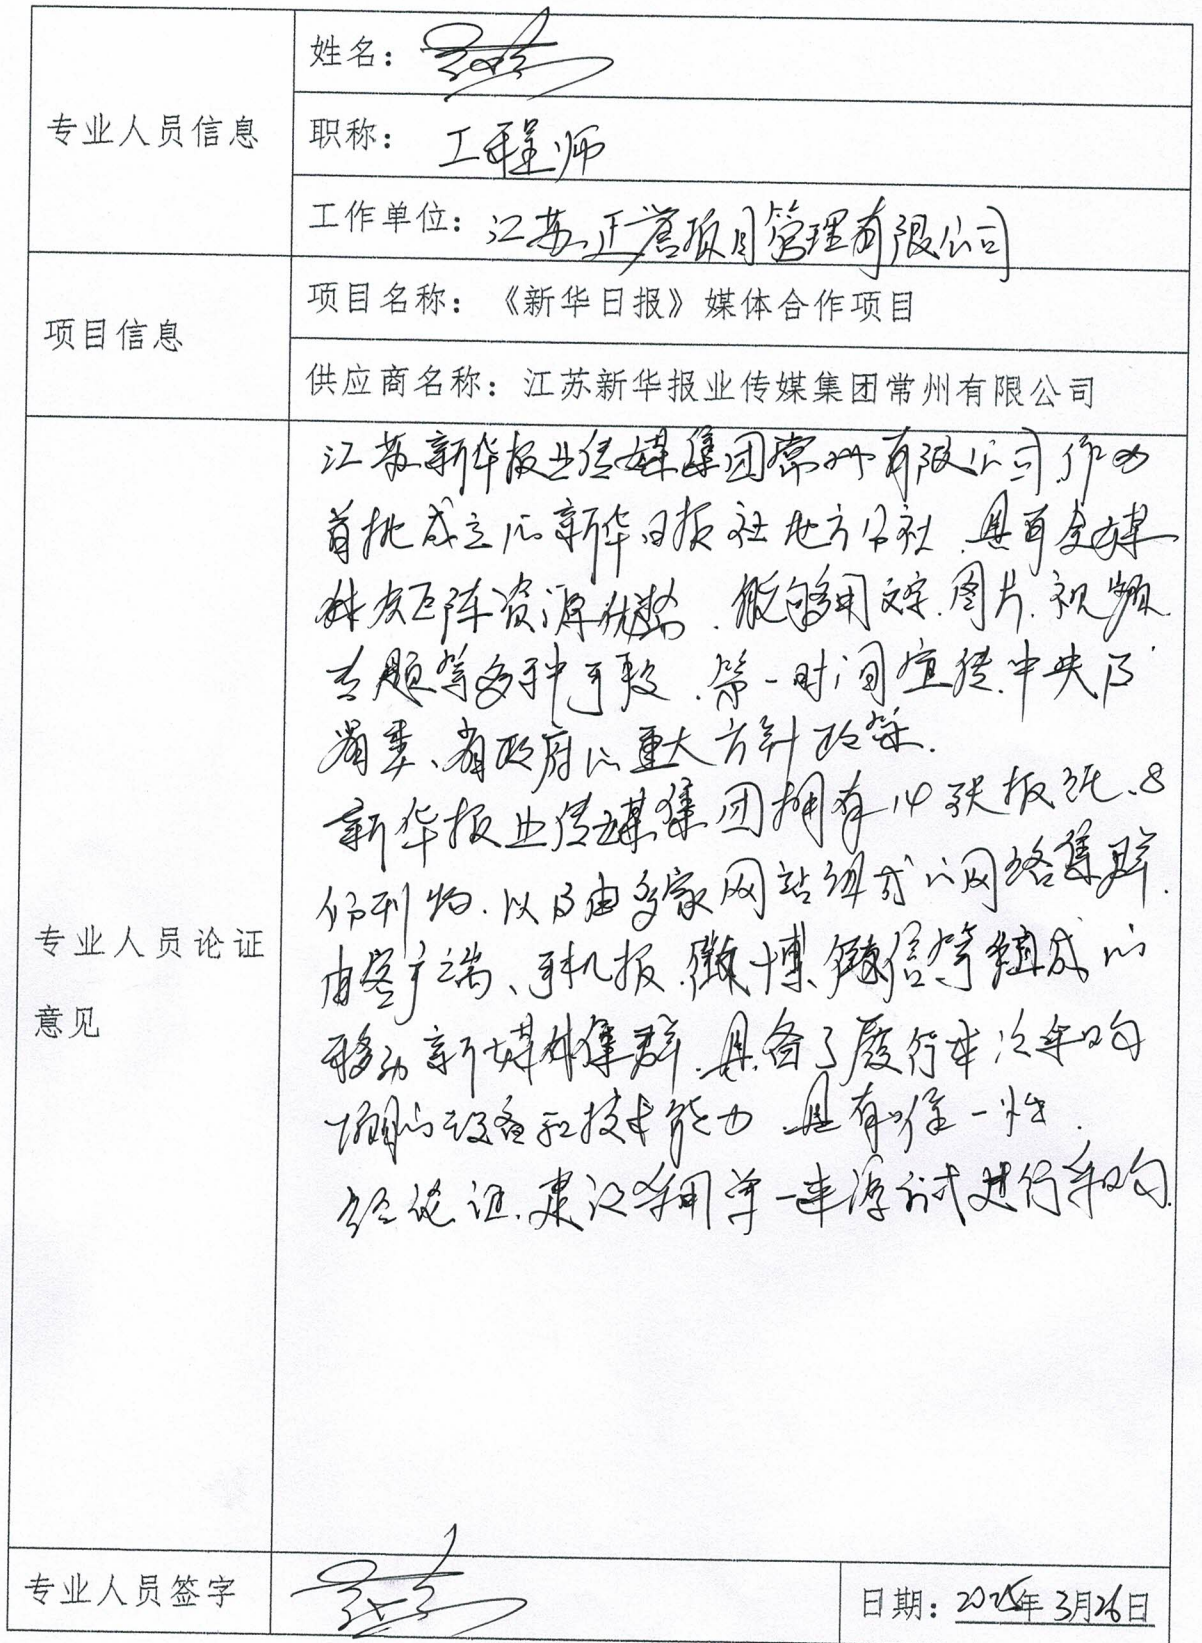 姓名：
专业人员信息
职称： 工程师
工作单位：江苏正誉项目管理有限公司
项目名称：《新华日报》媒体合作项目
项目信息
供应商名称：江苏新华报业传媒集团常州有限公司
江苏新华报业传媒集团常州有限公司作为
首批成立的新华日报社地方分社，具有全媒
体矩阵资源优势，能够用文字、图片、视频、
专题等多种手段，第一时间宣传中央及
省委、省政府的重大方针政策。
新华报业传媒集团拥有14张报纸、8
份刊物，以及由多家网站组成的网络集群，
由客户端、手机报、微博、微信等组成的
移动新媒体集群，具备了履行本次采购
的设备和技术能力，具有唯一性。
经论证，建议采用单一来源方式进行采购。
专业人员论证
意见
专业人员签字
日期：2025年3月26日